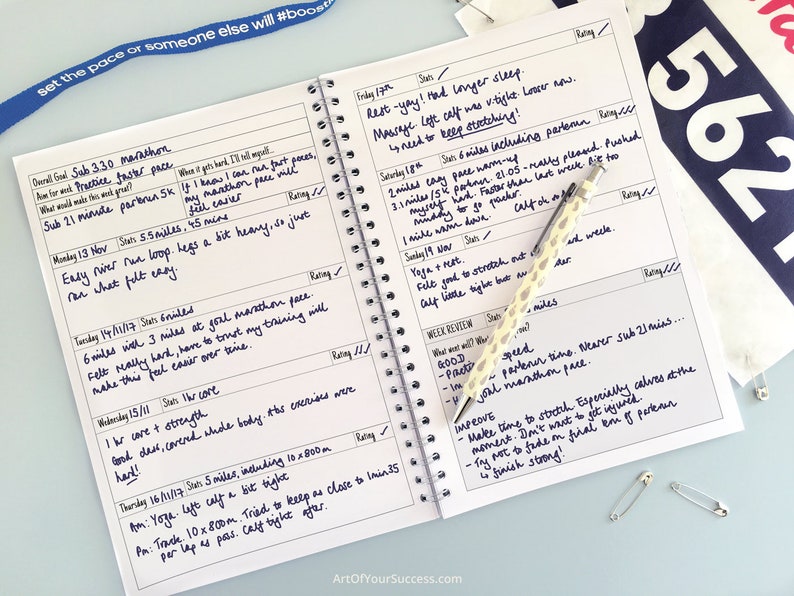 set the pace or someone else will #boost
Overall Goal Sub 3.30 marathon
Aim for week Practice faster pace
What would make this week great?
Sub 21 minute parkrun 5k
When it gets hard, I'll tell myself...
If I know I can run fast paces,
my marathon pace will
feel easier
Monday 13 Nov Stats 5.5 miles, 45 mins Rating ✓✓
Easy river run loop. Legs a bit heavy, so just
ran what felt easy.
Tuesday 14/11/17 Stats 6 miles Rating ✓
6 miles with 3 miles at goal marathon pace.
Felt really hard, have to trust my training will
make this feel easier over time.
Wednesday 15/11 Stats 1hr core Rating ✓✓✓
1 hr core + strength
Good class, covered whole body. Abs exercises were
hard!
Thursday 16/11/17 Stats 5 miles, including 10x800m Rating ✓
Am: Yoga. Left calf a bit tight
Pm: Track. 10x800m. Tried to keep as close to 1min35
per lap as poss. Calf tight after.
Friday 17th Stats / Rating ✓
Rest - yay! Had longer sleep.
Massage. Left calf was v.tight. Looser now.
↳ need to keep stretching!
Saturday 18th Stats 6 miles including parkrun Rating ✓✓✓
2 miles easy pace warm-up
3.1 miles/5k parkrun. 21.05 - really pleased. Pushed
myself hard. Faster than last week. Bit too
windy to go quicker.
1 mile warm down. Calf ok
Sunday 19 Nov Stats / Rating ✓
Yoga + rest.
Felt good to stretch out week.
Calf little tight but
WEEK REVIEW Stats miles Rating ✓✓✓
What went well?
GOOD
- speed
- parkrun time. Nearer sub 21 mins...
- goal marathon pace.
IMPROVE
- Make time to stretch. Especially calves at the
moment. Don't want to get injured.
- Try not to fade on final km of parkrun
↳ finish strong!
562
ArtOfYourSuccess.com